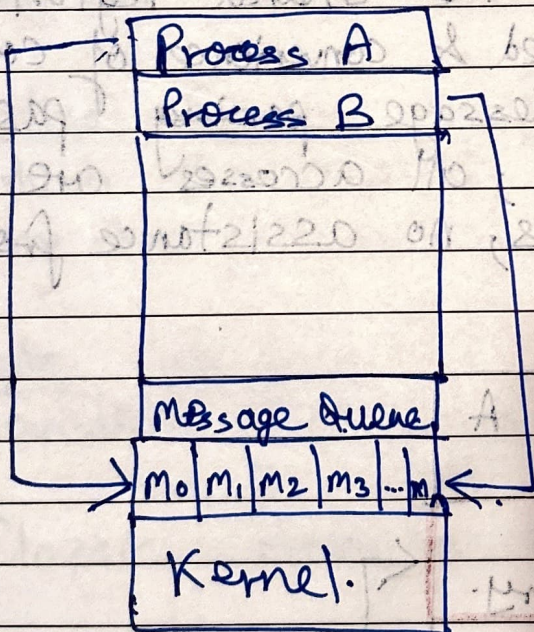 Process A
Process B
Message Queue
m0 m1 m2 m3 ... mn
Kernel.